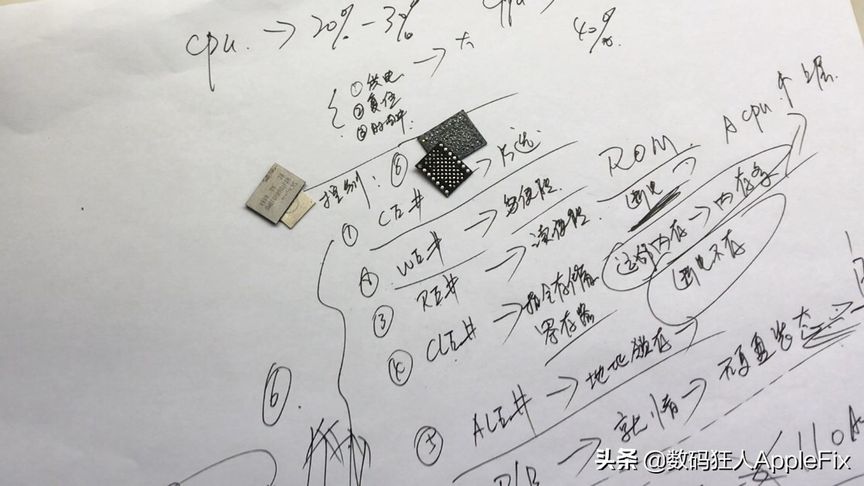 cpu. → 20% - 3%
cpu →
40%.
{ ① 供电 → 大
② 复位
③ 时钟
控制: ⑥
ROM
A cpu 个 上层
① CE# → 片选
② WE# → 写使能
断电
③ RE# → 读使能.
运行内存 → 内存条
断电不存
④ CLE# → 指令存储
寄存器
⑥.
⑤ ALE# → 地址锁存
R/B → 就绪 →
110A
头条 @数码狂人AppleFix